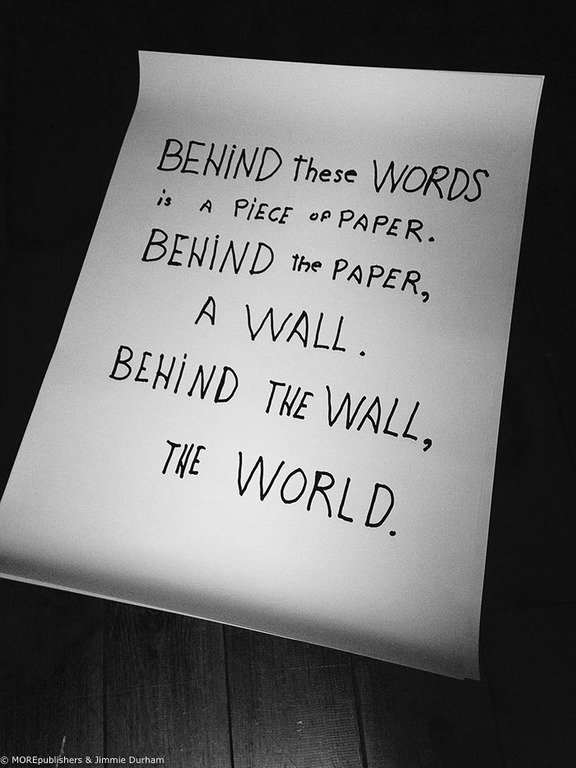 BEHiND these WORDS
is A PiECE of PAPER.
BEHiND the PAPER,
A WALL.
BEHiND THE WALL,
THE WORLD.
© MOREpublishers & Jimmie Durham